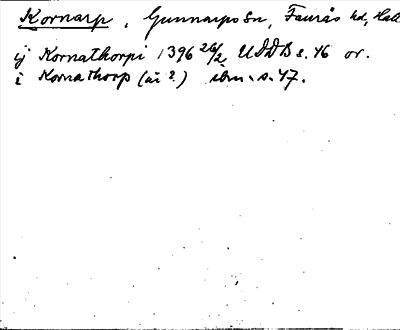 Kornarp, Gunnarps sn, Faurås hd, Hall
ij Kornathorpi 1396 26/2 UDDB s. 46 or.
i Kornathorp (år?) ibm. s. 47.